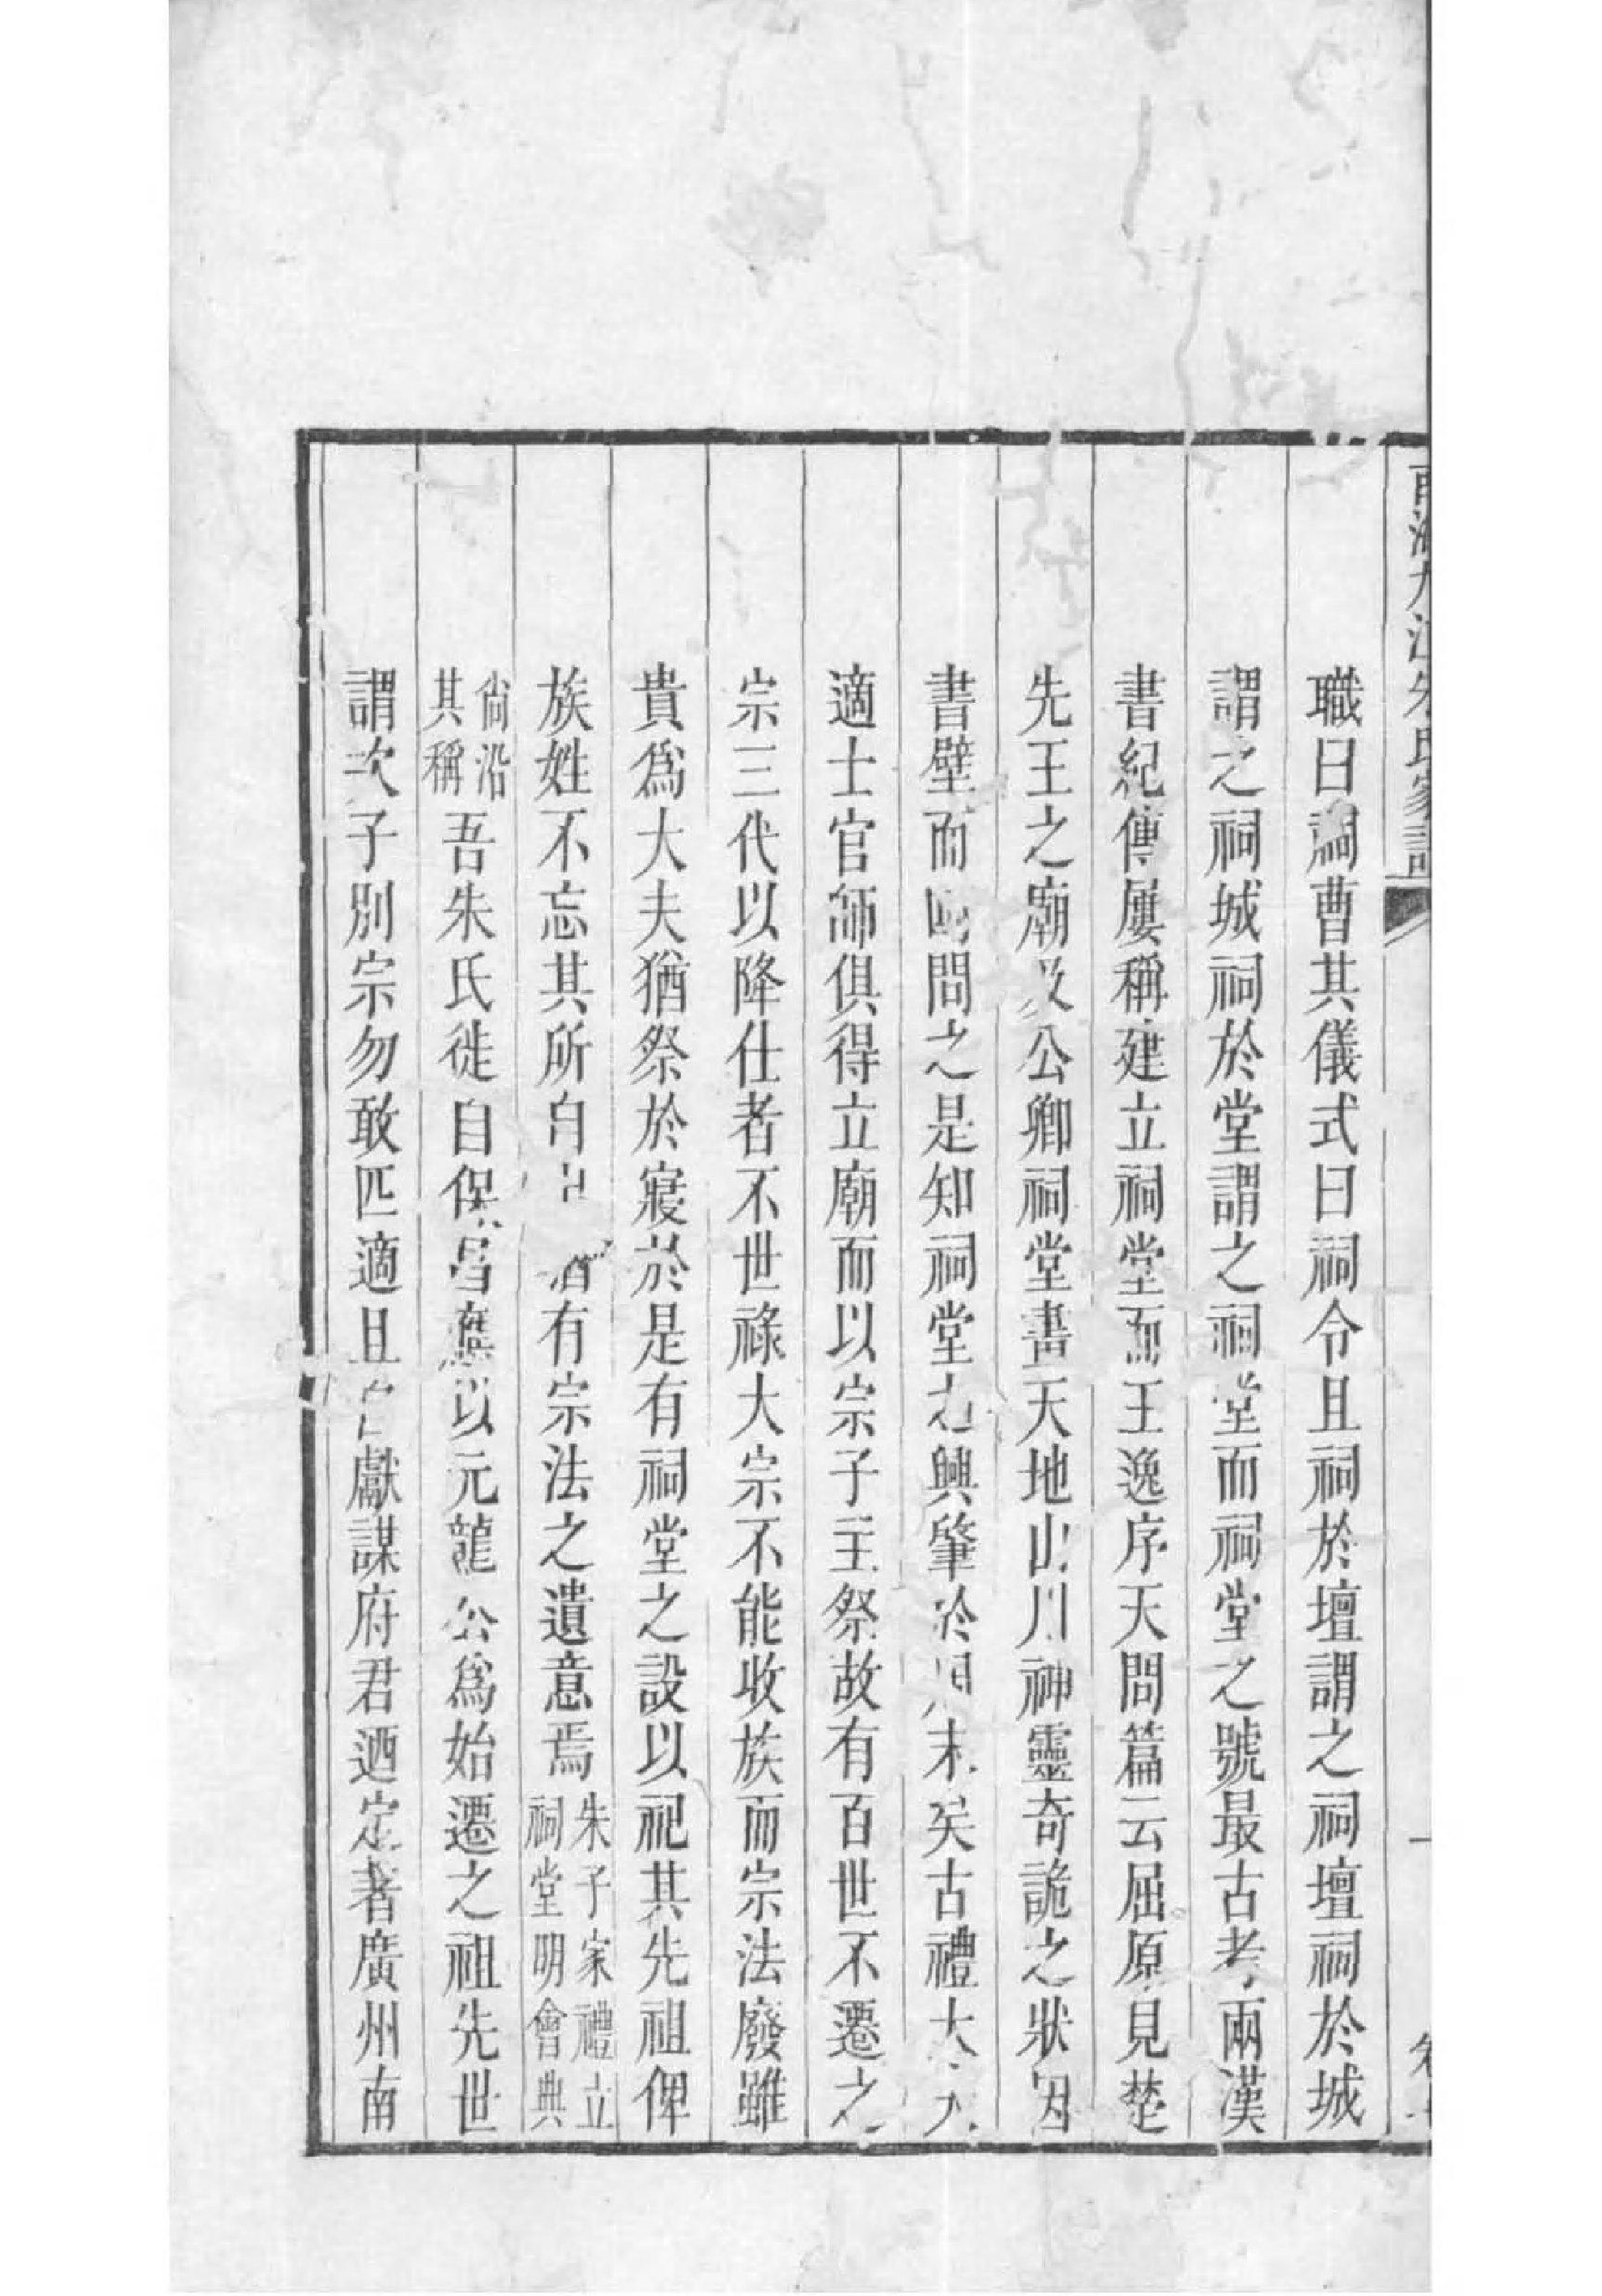 南海九江朱氏家譜
職曰祠曹其儀式曰祠令且祠於壇謂之祠壇祠於城
謂之祠城祠於堂謂之祠堂而祠堂之號最古考兩漢
書紀傳屢稱建立祠堂而王逸序天問篇云屈原見楚
先王之廟及公卿祠堂畫天地山川神靈奇詭之狀因
書壁而問之是知祠堂之興肇於周末矣古禮大夫
適士官師俱得立廟而以宗子主祭故有百世不遷之
宗三代以降仕者不世祿大宗不能收族而宗法廢雖
貴爲大夫猶祭於寢於是有祠堂之設以祀其先祖俾
族姓不忘其所自出猶有宗法之遺意焉朱子家禮立祠堂明會典
尙沿其稱吾朱氏徙自保昌應以元龍公爲始遷之祖先世
謂次子別宗勿敢匹適且獻謀府君迺定著廣州南